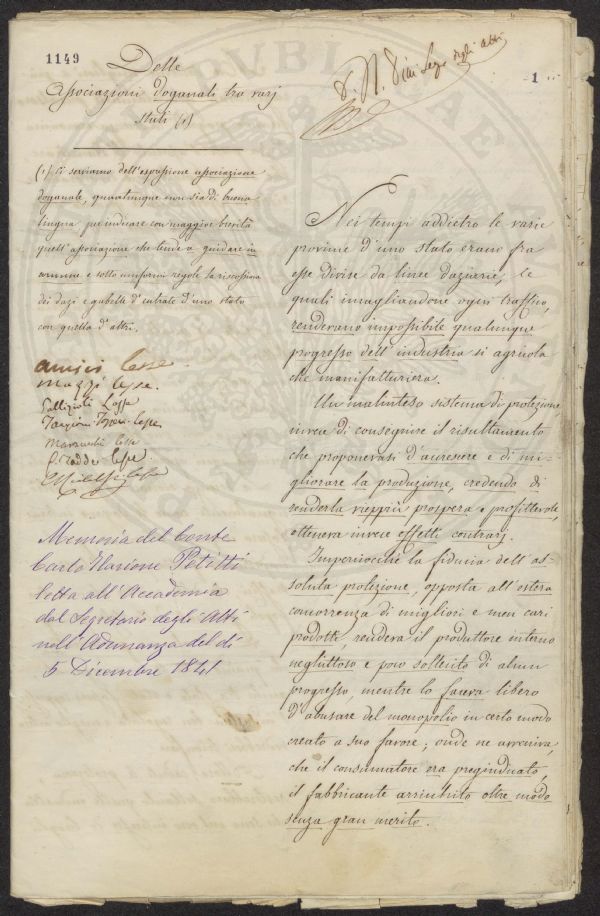 1149
1
Delle
Associazioni doganali tra varj
stati (1)
(1) Ci serviamo dell'espressione associazione
doganale, quantunque non sia di buona
lingua per indicare con maggior brevità
quell'associazione che tende a guidare in
comune e sotto uniformi regole la riscossione
dei dazi e gabelle d'entrata d'uno stato
con quella d'altri.
amici lesse
mazzi lesse.
Targioni Tozzetti lesse
lesse
Taddei lesse.
Memoria del Conte
Carlo Ilarione Petitti
letta all'Accademia
dal Segretario degli Atti
nell'Adunanza del dì
5 Dicembre 1841
Nei tempi addietro le varie
provincie d'uno stato erano fra
esse divise da linee daziarie, le
quali incagliandone ogni traffico,
rendevano impossibile qualunque
progresso dell'industria sì agricola
che manifatturiera.
Un malinteso sistema di protezione
invece di conseguire il risultamento
che proponevasi d'accrescere e di mi-
gliorare la produzione, credendo di
renderla vieppiù prospera e profittevole,
otteneva invece effetti contrarj.
Imperciocchè la fiducia dell'as-
soluta protezione, opposta all'estera
concorrenza di migliori e men cari
prodotti, rendeva il produttore interno
neghittoso e poco sollecito di alcun
progresso, mentre lo faceva libero
d'abusare del monopolio in certo modo
creato a suo favore; onde ne avveniva,
che il consumatore era pregiudicato,
il fabbricante arricchito oltre modo
senza gran merito.